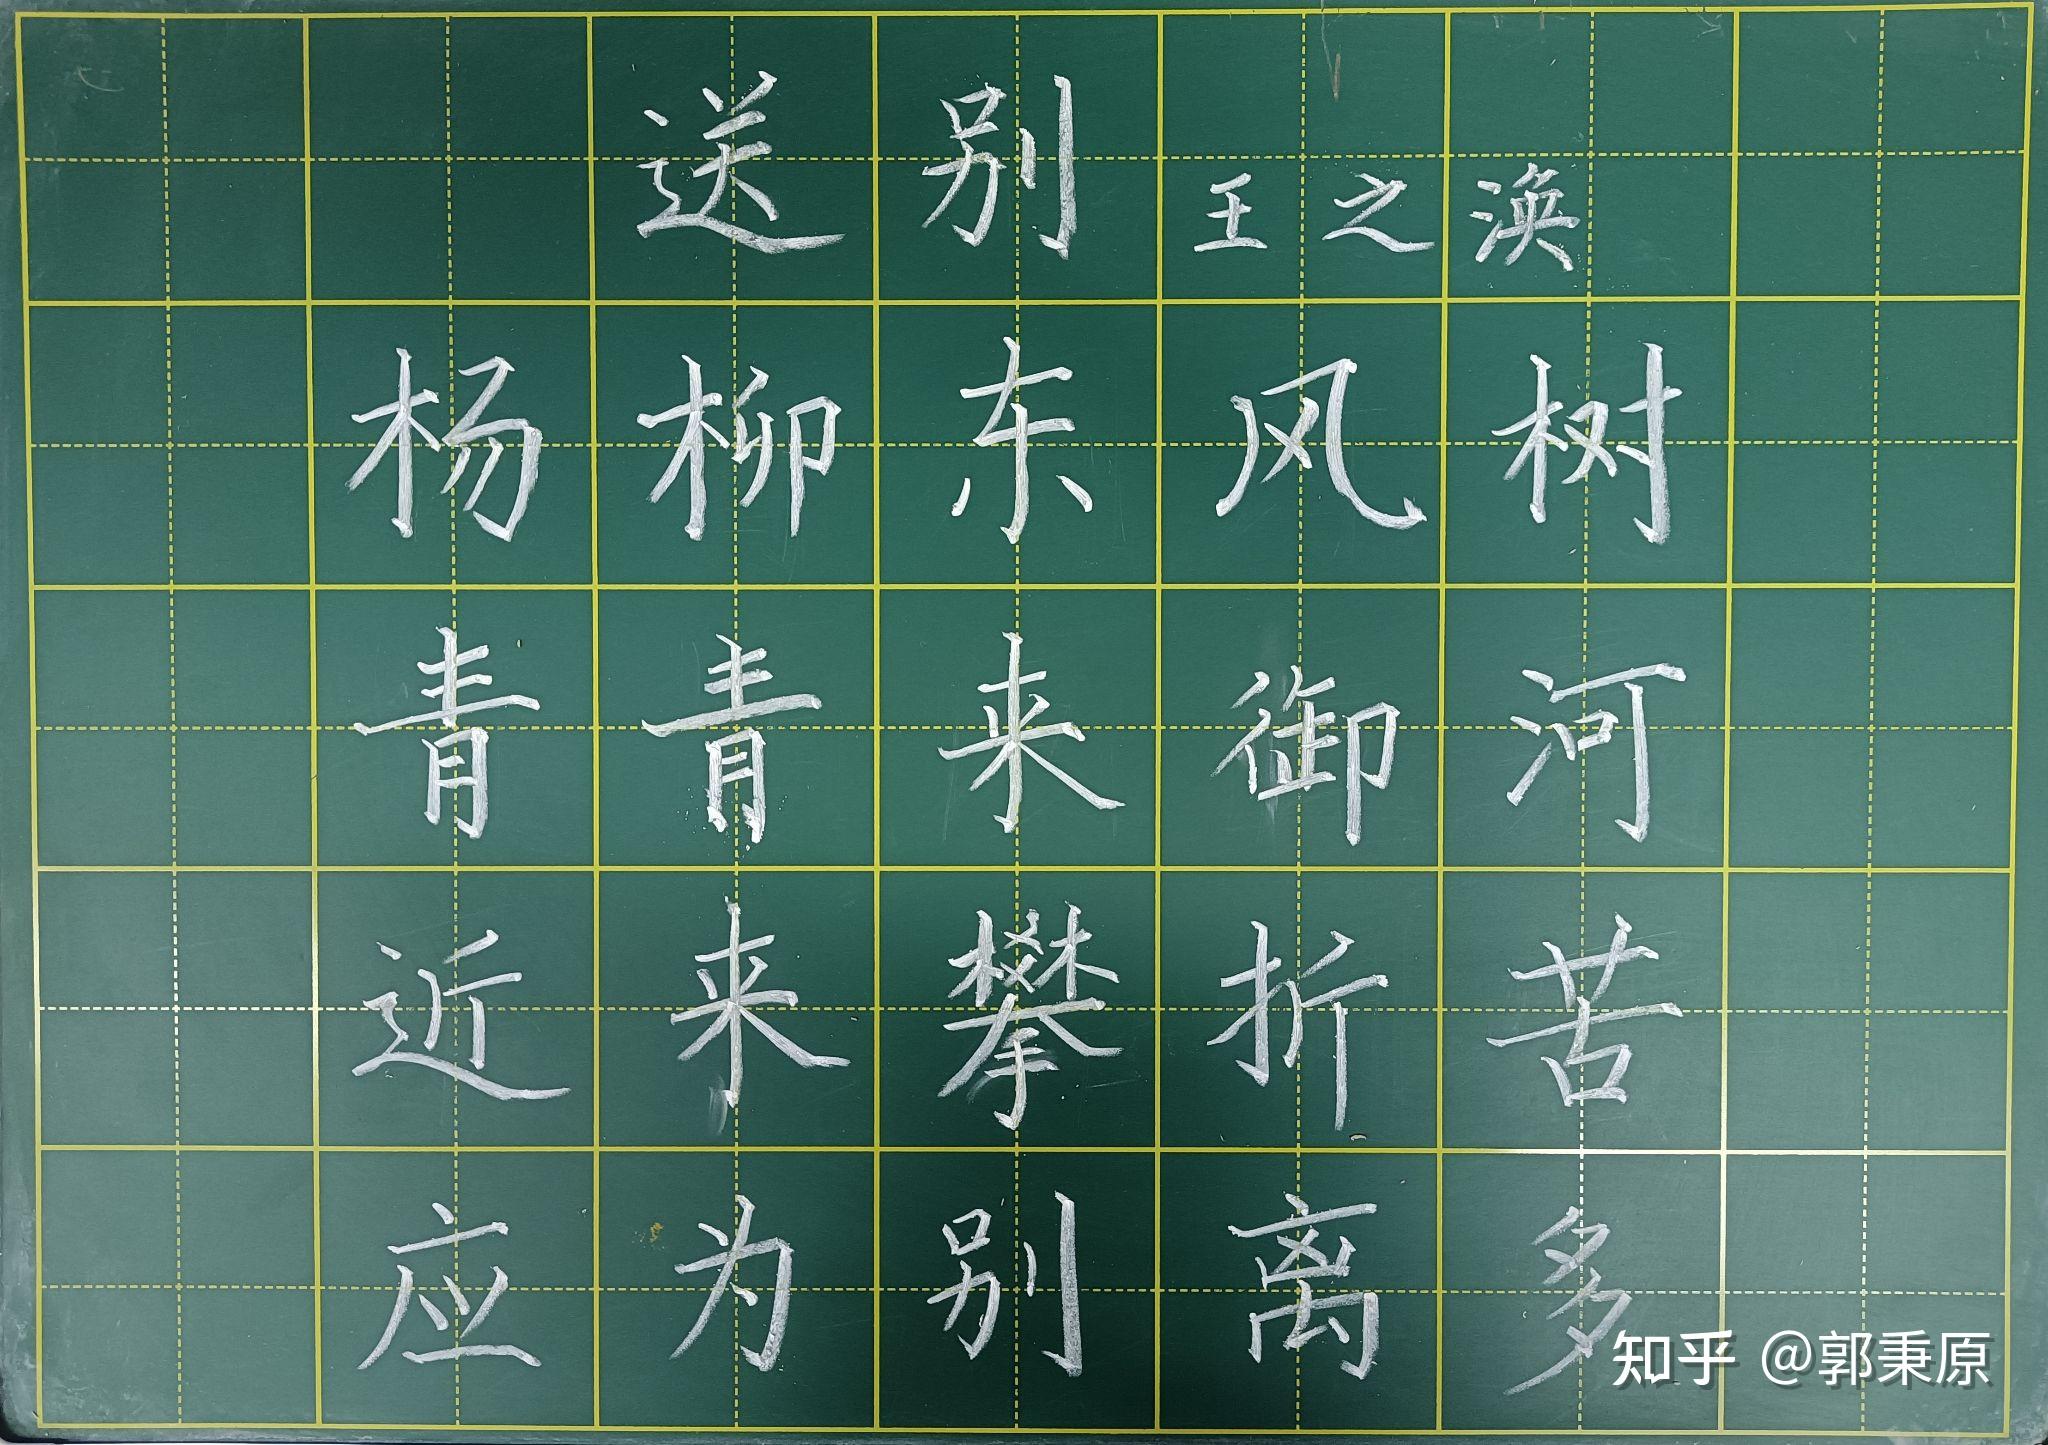 送别 王之涣
杨柳东风树
青青来御河
近来攀折苦
应为别离多
知乎 @郭秉原